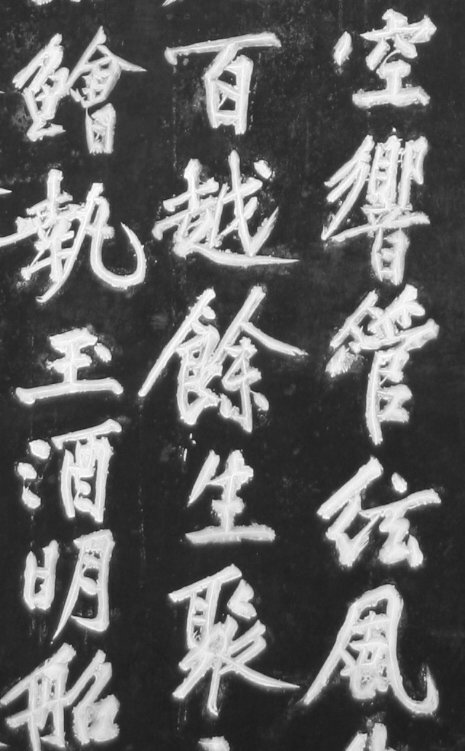 空響管絃風
百越餘生聚
鱠執玉酒明船